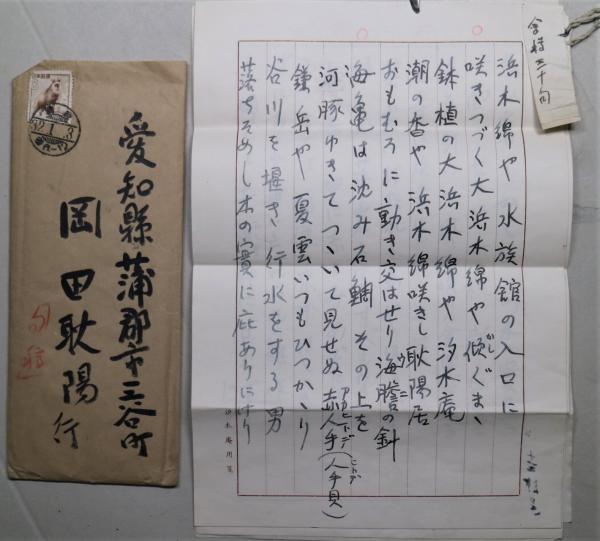 愛知縣蒲郡市三谷町
岡田耿陽行
日本郵便
32.1.3
浜木綿や水族館の入口に
咲きつづく大浜木綿や傾ぐまゝ
鉢植の大浜木綿や汐木庵
潮の香や浜木綿咲きし耿陽居
おもむろに動き交はせり海膽の針
海亀は沈み石鯛その上を
河豚ゆきてつゝいて見せぬ赤人手(人手貝)
鎌岳や夏雲いつもひつかゝり
谷川を堰き行水をする男
落ちそめし木の實に庇ありにけり
汐木庵用箋
三十句